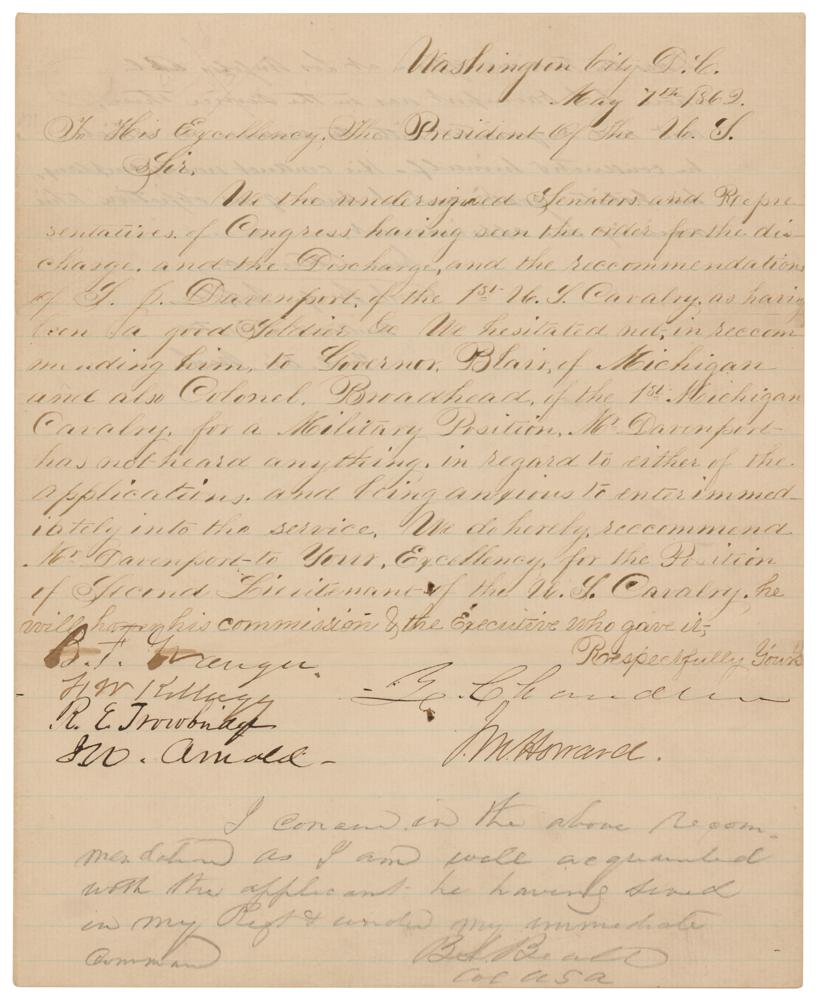 Washington City D.C.
May 7th 1862.
To His Excellency, The President Of The U. S.
Sir,
We the undersigned Senators and Repre
sentatives of Congress having seen the order for the dis-
charge, and the Discharge, and the reccommendations
of S. J. Davenport, of the 1st U. S. Cavalry, as having
been a good Soldier &c We hesitated not, in reccom
mending him, to Governor, Blair, of Michigan
and also Colonel, Broadhead, of the 1st Michigan
Cavalry, for a Military Position, Mr Davenport
has not heard anything, in regard to either of the
applications, and being anxious to enter immed-
iately into the service, We do hereby, reccommend
Mr Davenport to Your, Excellency, for the Position
of Second Lieutenant of the U. S. Cavalry, he
will honor his commission & the Executive who gave it,
Respectfully Yours
B. F. Granger
Z. Chandler
R. E. Trowbridge
J. M. Howard.
Arnold
I concur in the above recom-
mendation as I am well acquainted
with the applicant he having served
in my Regt & under my immediate
command
B L Beall
Col USA